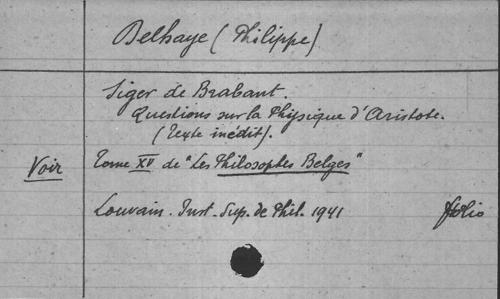 Delhaye (Philippe).
Siger de Brabant.
Questions sur la Physique d'Aristote.
(Texte inédit).
Voir Tome XV de "Les Philosophes Belges"
Louvain. Inst. Sup. de Phil. 1941 folio